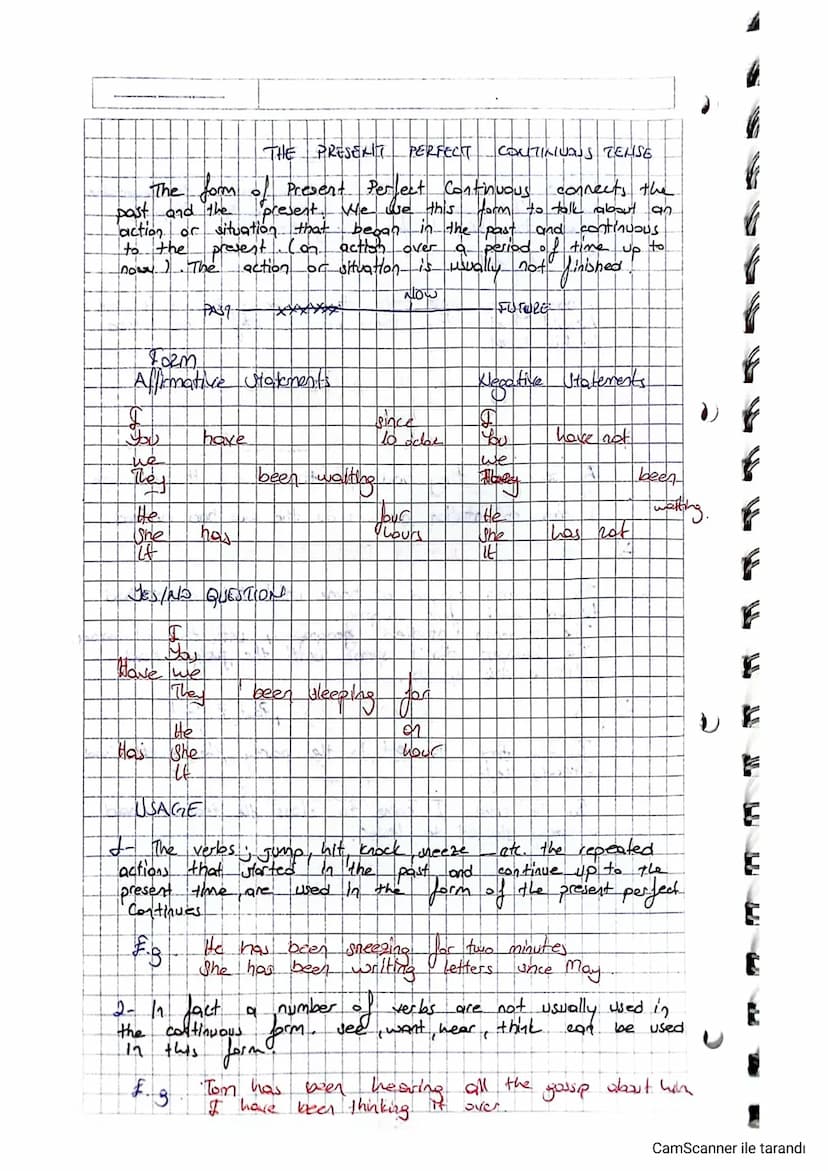 THE PRESENT PERFECT CONTINUOUS TENSE
The form of Present Perfect Continuous connects the
past and the present. We use this form to talk about an
action or situation that began in the past and continuous
to the present. (on action over a period of time up to
now). The action or situation is usually not finished.
NOW
PAST xxxxxxx FUTURE
Form
Affirmative Statements Negative Statements
I since I
You have 10 oclok You have not
we we
They been waiting They been
waiting.
He four He
She has hours She has not
It It
YES/NO QUESTION
I
You
Have we
They been sleeping for
He on
Has She hour
It
USAGE
1- The verbs; jump, hit, knock, sneeze - etc. the repeated
actions that started in the past and continue up to the
present time, are used in the form of the present perfect
Continues
E.g He has been sneezing for two minutes
She has been writing letters since May.
2- In fact a number of verbs are not usually used in
the continuous form. see, want, hear, think can be used
in this form.
E.g. Tom has been hearing all the gossip about him
I have been thinking it over.
CamScanner ile tarandı